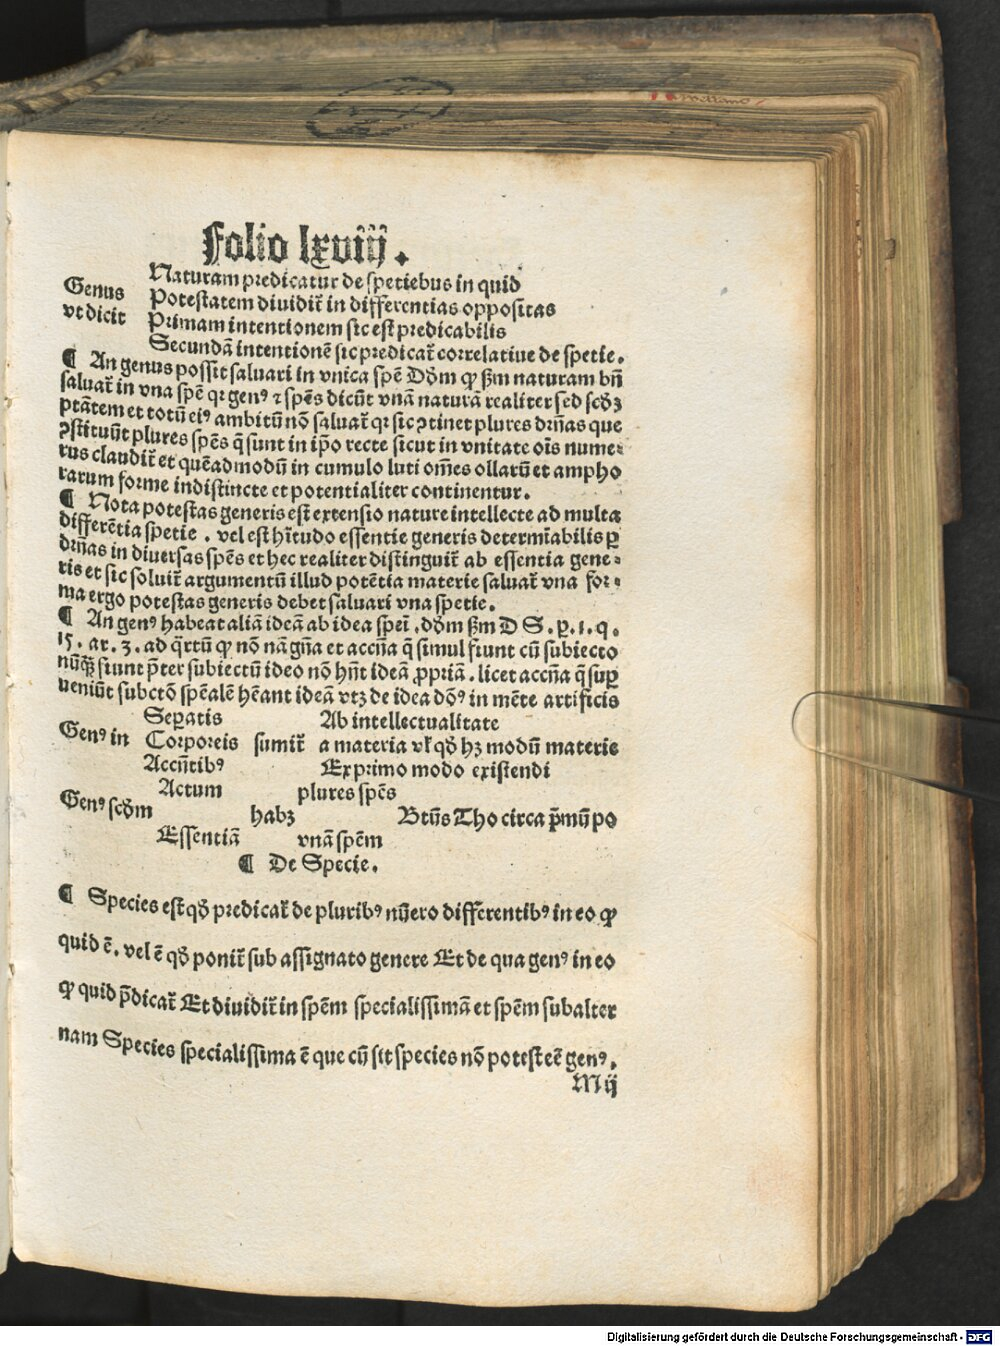 Folio lxviij.
Naturam predicatur de spetiebus in quid
Genus Potestatem diuidit̃ in differentias oppositas
vt dicit Primam intentionem sic est predicabilis
Secundã intentionẽ sic predicat̃ correlatiue de spetie.
¶ An genus possit saluari in vnica spẽ Dd̃m ꝙ s̃m naturam bñ
saluat̃ in vna spẽ qꝛ genꝰ ⁊ spẽs dicũt vnã naturã realiter sed scd̃ꝫ
ptãtem et totũ eiꝰ ambitũ nõ saluat̃ qꝛ sic ꝯtinet plures dr̃nas que
ꝯstituũt plures spẽs q̃ sunt in ip̃o recte sicut in vnitate oĩs nume⸗
rus claudit̃ et quẽadmodũ in cumulo luti om̃es ollarũ et ampho
rarum forme indistincte et potentialiter continentur.
¶ Nota potestas generis est extensio nature intellecte ad multa
differẽtia spetie. vel est hĩtudo essentie generis determĩabilis ꝑ
dr̃nas in diuersas spẽs et hec realiter distinguit̃ ab essentia gene⸗
ris et sic soluit̃ argumentũ illud potẽtia materie saluat̃ vna for⸗
ma ergo potestas generis debet saluari vna spetie.
¶ An genꝰ habeat aliã ideã ab idea spẽi. dd̃m s̃m D S. ꝑ. 1. q.
15. ar. 3. ad q̃rtũ ꝙ nõ nã gñа et accñа q̃ simul fiunt cũ subiecto
nũꝙꝫ fiunt p̃ter subiectũ ideo nõ hñt ideã ꝓpriã. licet accñа q̃ suꝑ
ueniũt subctõ spẽalẽ hẽant ideã vtꝫ de idea dõꝰ in mẽte artificis
Seꝑatis Ab intellectualitate
Genꝰ in Corporeis sumit̃ a materia vl̃ qd̃ hꝫ modũ materie
Accñtibꝰ Ex primo modo existendi
Actum plures spẽs
Genꝰ scd̃m habꝫ Btũs Tho circa p̃mũ po
Essentiã vnã spẽm
¶ De Specie.
¶ Species est qd̃ predicat̃ de pluribꝰ nũero differentibꝰ in eo ꝙ
quid ẽ. vel ẽ qd̃ ponit̃ sub assignato genere Et de qua genꝰ in eo
ꝙ quid p̃dicat̃ Et diuidit̃ in spẽm specialissimã et spẽm subalter
nam Species specialissima ẽ que cũ sit species nõ potest eẽ genꝰ.
M ij
Digitalisierung gefördert durch die Deutsche Forschungsgemeinschaft - DFG